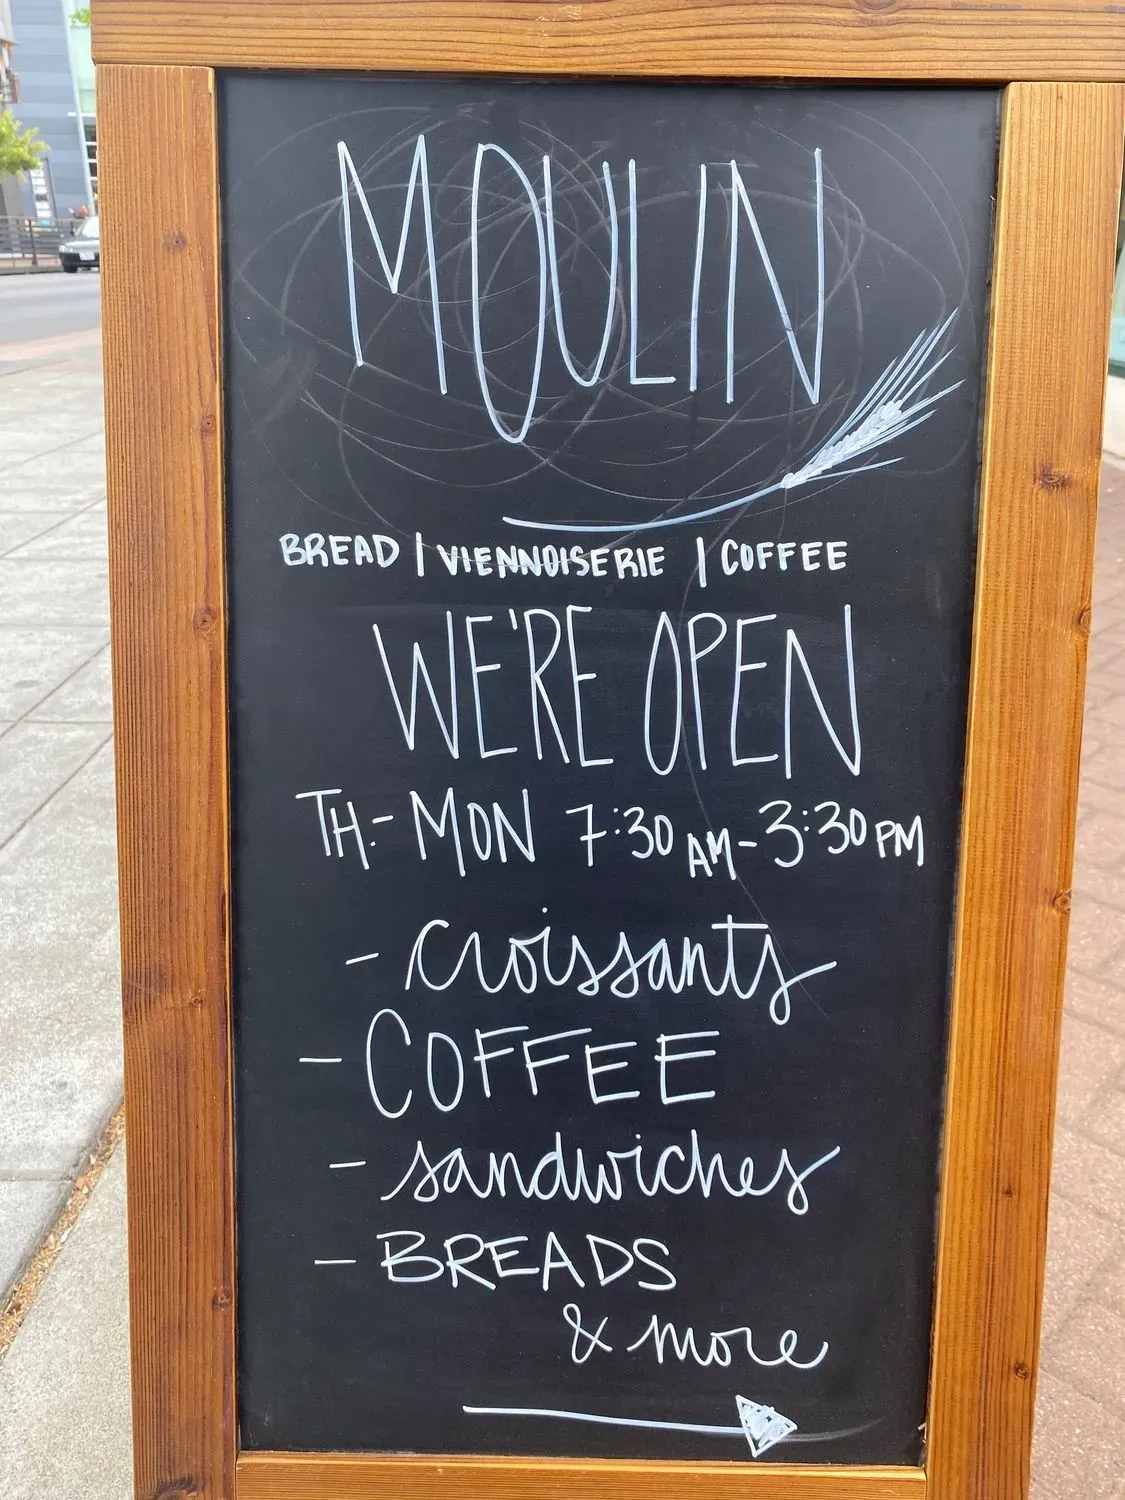 MOULIN
BREAD | VIENNOISERIE | COFFEE
WE'RE OPEN
TH.- MON 7:30 AM - 3:30 PM
- croissants
- COFFEE
- sandwiches
- BREADS
& more